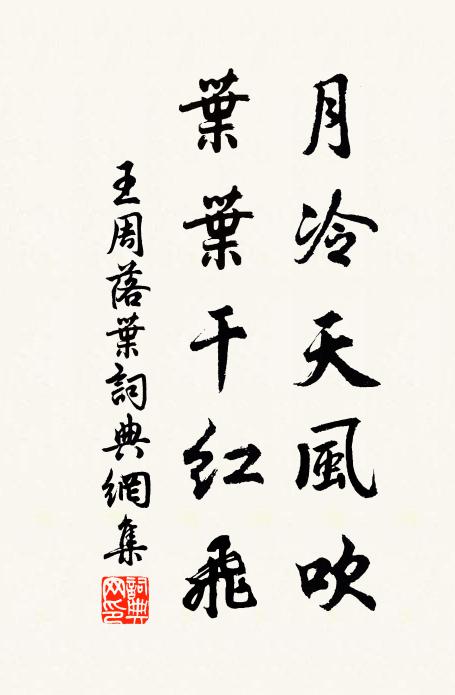 月冷天風吹
葉葉干紅飛
王周落葉詞典網集
詞典
网印